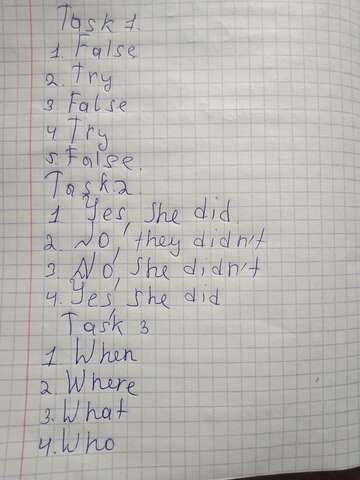 Task 1.
1. False
2. Try
3 False
4 Try
5 False.
Task 2
1 Yes, she did
2. No, they didn't
3. No, she didn't
4. Yes, she did
Task 3
1 When
2 Where
3. What
4. Who